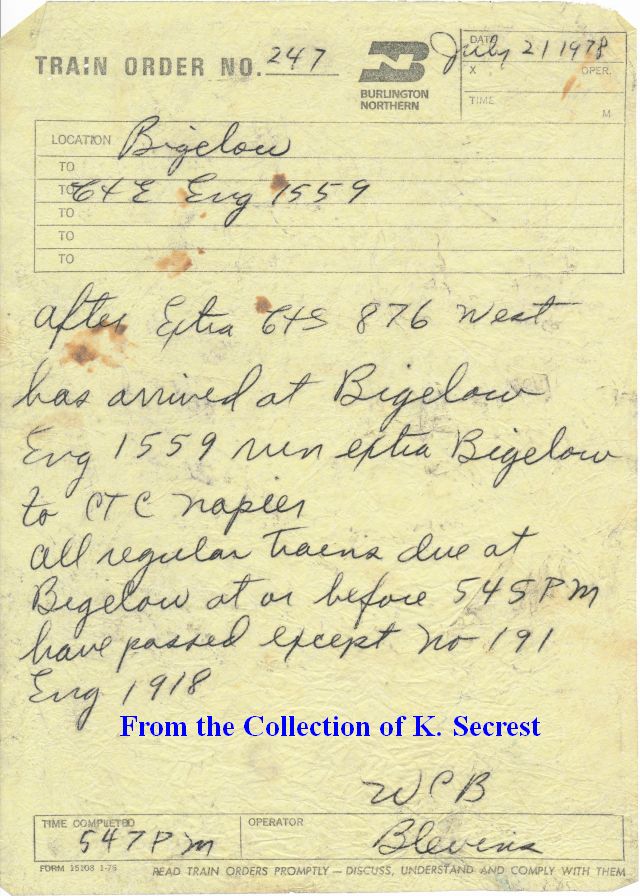 TRAIN ORDER NO. 247
BURLINGTON
NORTHERN
DATE July 21 1978
X OPER.
TIME M
LOCATION Bigelow
TO
TO C&E Eng 1559
TO
TO
TO
After Extra C&S 876 West
has arrived at Bigelow
Eng 1559 run extra Bigelow
to CTC Napier
All regular trains due at
Bigelow at or before 545 PM
have passed except No 191
Eng 1918
From the Collection of K. Secrest
WCB
TIME COMPLETED 547 PM
OPERATOR Blevins
FORM 15108 1-76 READ TRAIN ORDERS PROMPTLY — DISCUSS, UNDERSTAND AND COMPLY WITH THEM